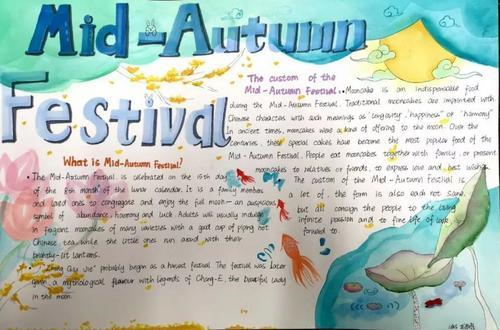 Mid-Autumn
Festival
The custom of the
Mid-Autumn Festival.
Mooncake is an indispensable food
during the Mid-Autumn Festival. Traditional mooncakes are imprinted with
Chinese characters with such meanings as "longevity", "happiness" or "harmony".
In ancient times, mooncakes were a kind of offering to the moon. Over the
centuries, these special cakes have become the most popular food of the
Mid-Autumn Festival. People eat mooncakes together with family, or present
mooncakes to relatives or friends, to express love and best wishes.
The custom of the Mid-Autumn Festival is
a lot, the form is also each not same,
but all consign the people to the living
infinite passion and to fine life of look
forward to.
What is Mid-Autumn Festival?
The Mid-Autumn Festival is celebrated on the 15th day
of the 8th month of the lunar calendar. It is a family members
and loved ones to congregate and enjoy the full moon — an auspicious
symbol of abundance, harmony and luck. Adults will usually indulge
in fragrant mooncakes of many varieties with a good cup of piping hot
Chinese tea, while the little ones run around with their
brightly-lit lanterns.
"Zhong Qiu Jie" probably began as a harvest festival. The festival was later
given a mythological flavour with legends of Chang-E, the beautiful lady
in the moon.